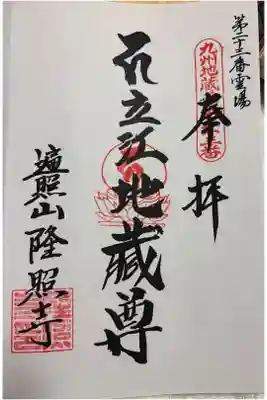 第二十三番霊場
九州地蔵
番
奉拝
立江地蔵尊
遍照山隆照寺